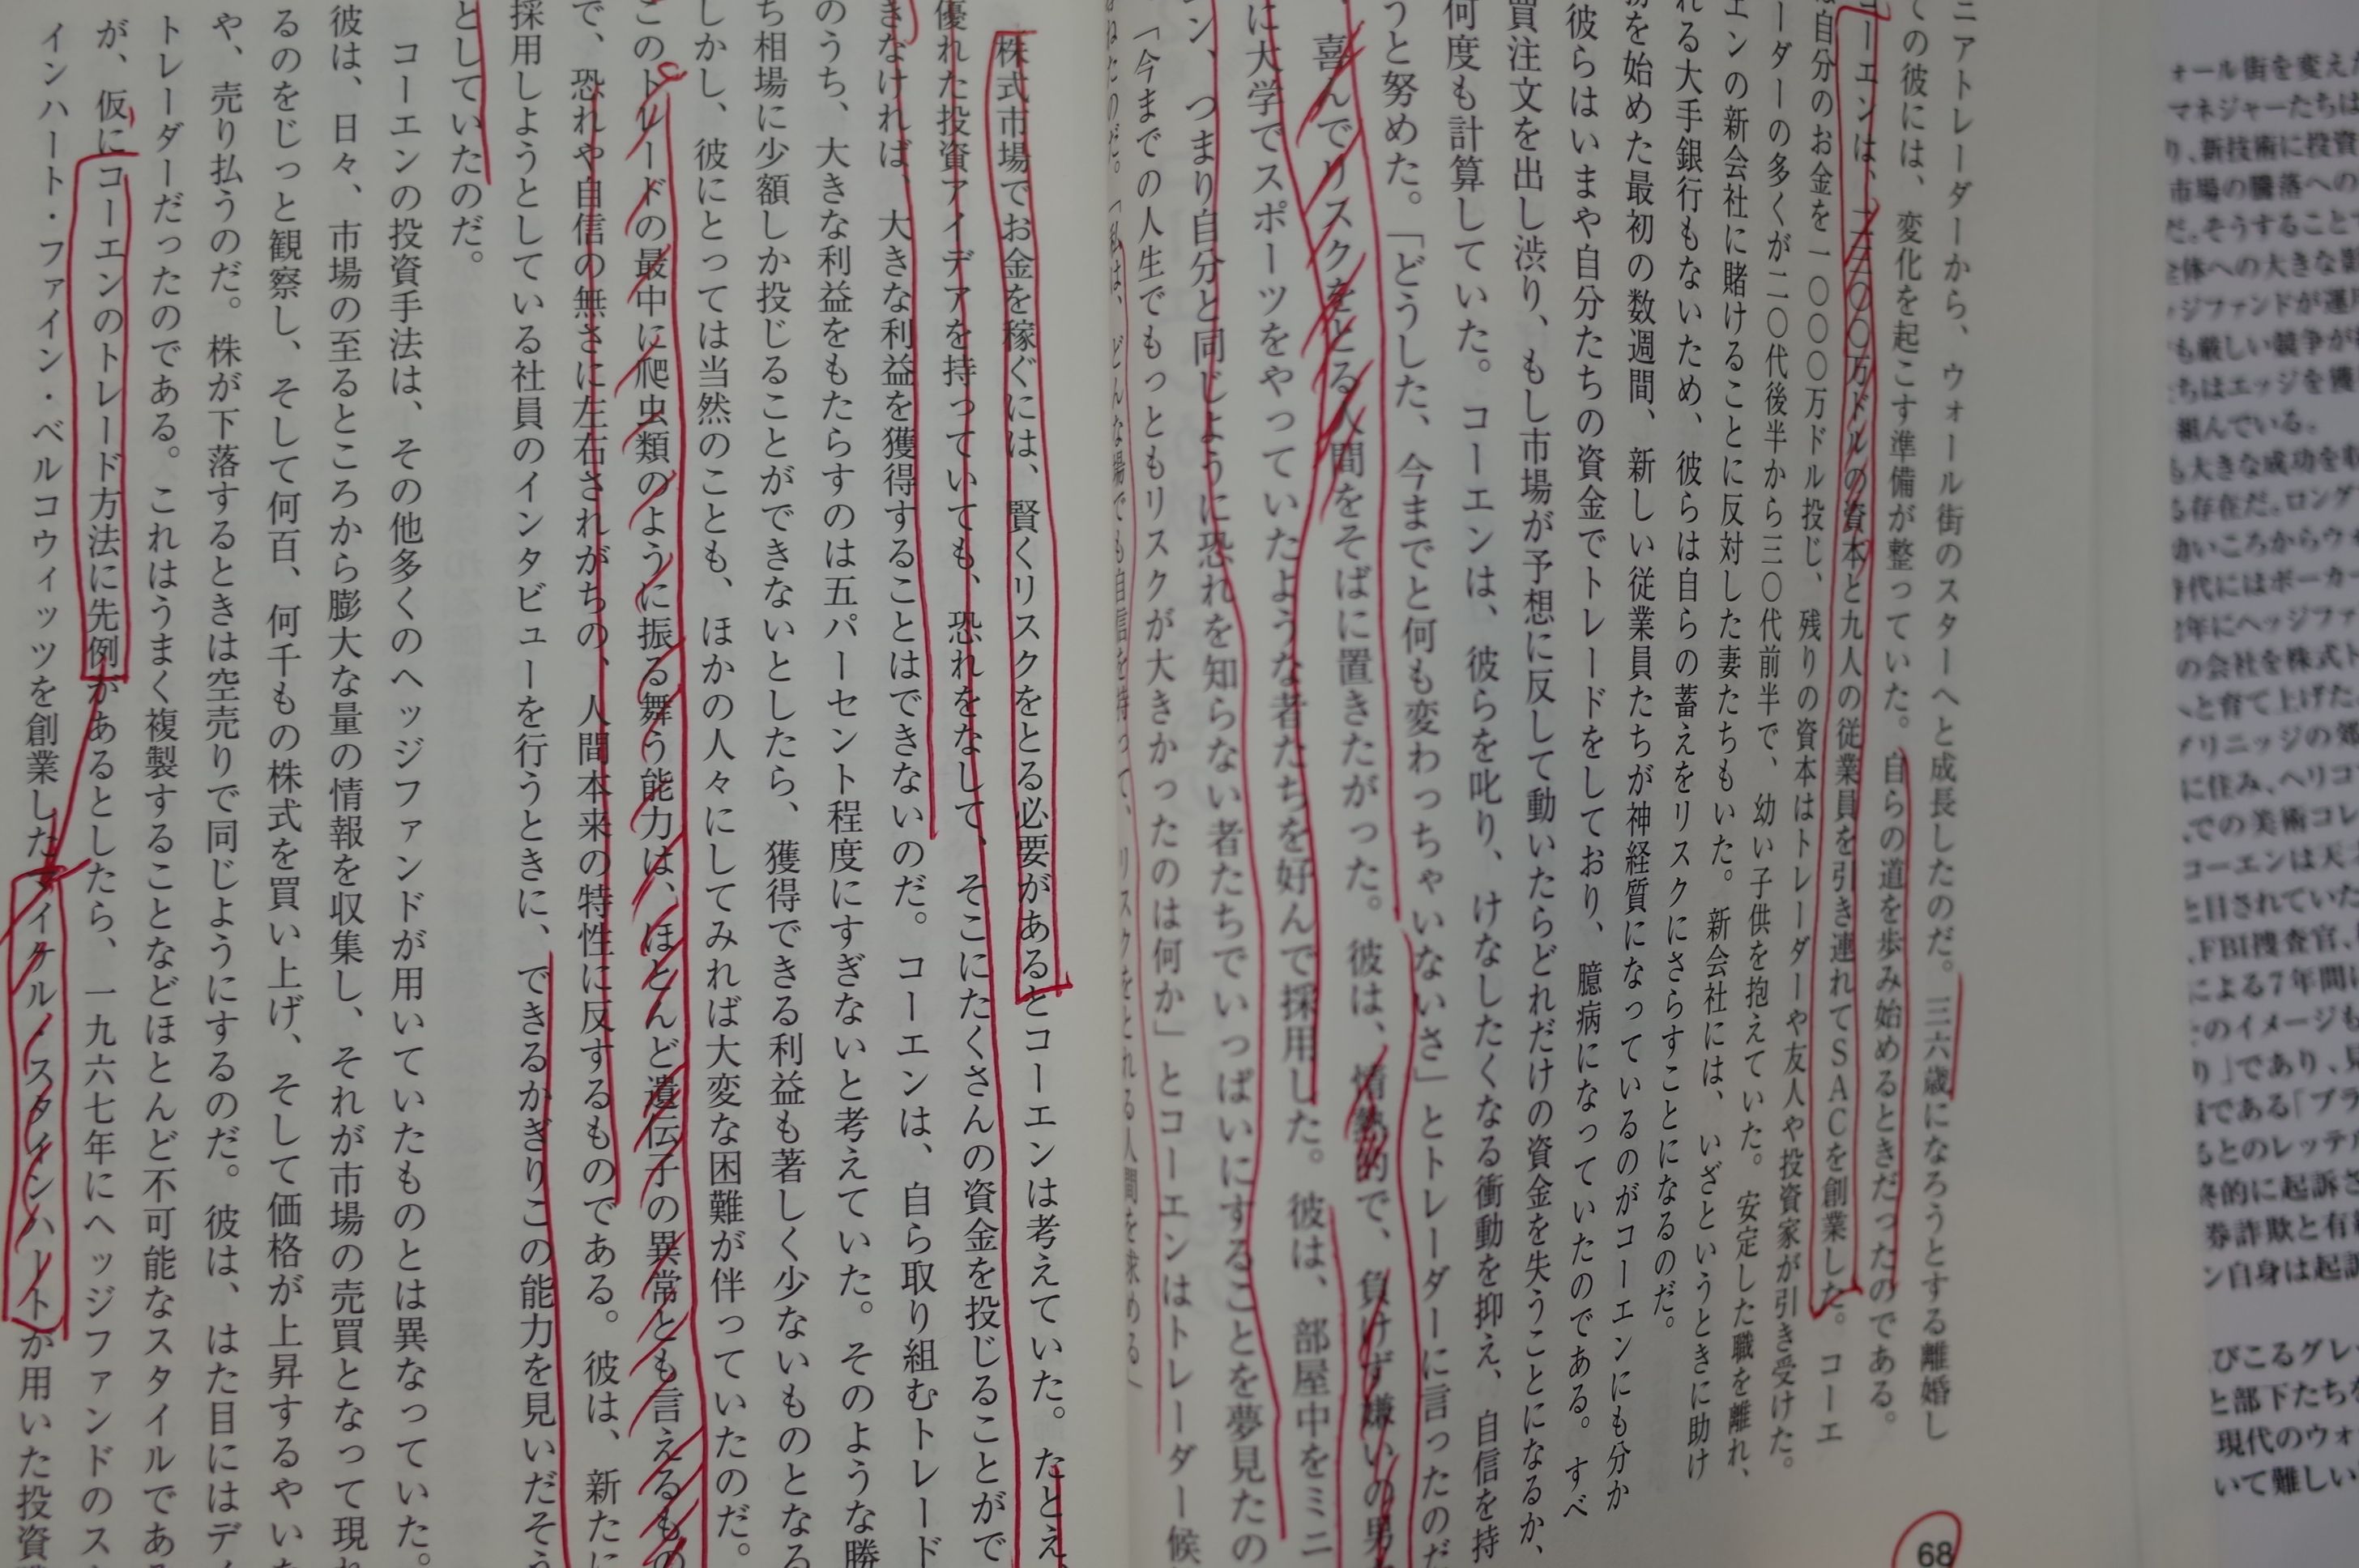 ニアトレーダーから、ウォール街のスターへと成長したのだ。三六歳になろうとする離婚し
ての彼には、変化を起こす準備が整っていた。自らの道を歩み始めるときだったのである。
コーエンは、二三〇〇万ドルの資本と九人の従業員を引き連れてSACを創業した。コーエ
は自分のお金を一〇〇〇万ドル投じ、残りの資本はトレーダーや友人や投資家が引き受けた。
ーダーの多くが二〇代後半から三〇代前半で、幼い子供を抱えていた。安定した職を離れ、
エンの新会社に賭けることに反対した妻たちもいた。新会社には、いざというときに助け
れる大手銀行もないため、彼らは自らの蓄えをリスクにさらすことになるのだ。
務を始めた最初の数週間、新しい従業員たちが神経質になっているのがコーエンにも分か
彼らはいまや自分たちの資金でトレードをしており、臆病になっていたのである。すべ
買注文を出し渋り、もし市場が予想に反して動いたらどれだけの資金を失うことになるか、
何度も計算していた。コーエンは、彼らを叱り、けなしたくなる衝動を抑え、自信を持
うと努めた。「どうした、今までと何も変わっちゃいないさ」とトレーダーに言ったのだ
喜んでリスクをとる人間をそばに置きたがった。彼は、情熱的で、負けず嫌いの男
に大学でスポーツをやっていたような者たちを好んで採用した。彼は、部屋中をミニ
ン、つまり自分と同じように恐れを知らない者たちでいっぱいにすることを夢見たの
「今までの人生でもっともリスクが大きかったのは何か」とコーエンはトレーダー候
ねたのだ。「私は、どんな場でも自信を持って、リスクをとれる人間を求める」
株式市場でお金を稼ぐには、賢くリスクをとる必要があるとコーエンは考えていた。たとえ、
優れた投資アイデアを持っていても、恐れをなして、そこにたくさんの資金を投じることがで
きなければ、大きな利益を獲得することはできないのだ。コーエンは、自ら取り組むトレード
のうち、大きな利益をもたらすのは五パーセント程度にすぎないと考えていた。そのような勝
ち相場に少額しか投じることができないとしたら、獲得できる利益も著しく少ないものとなる
しかし、彼にとっては当然のことも、ほかの人々にしてみれば大変な困難が伴っていたのだ。
このトレードの最中に爬虫類のように振る舞う能力は、ほとんど遺伝子の異常とも言えるもの
で、恐れや自信の無さに左右されがちの、人間本来の特性に反するものである。彼は、新たに
採用しようとしている社員のインタビューを行うときに、できるかぎりこの能力を見いだそう
としていたのだ。
コーエンの投資手法は、その他多くのヘッジファンドが用いていたものとは異なっていた。
彼は、日々、市場の至るところから膨大な量の情報を収集し、それが市場の売買となって現れ
るのをじっと観察し、そして何百、何千もの株式を買い上げ、そして価格が上昇するやいな
や、売り払うのだ。株が下落するときは空売りで同じようにするのだ。彼は、はた目にはデイ
トレーダーだったのである。これはうまく複製することなどほとんど不可能なスタイルである
が、仮にコーエンのトレード方法に先例があるとしたら、一九六七年にヘッジファンドのス
インハート・ファイン・ベルコウィッツを創業したマイケル・スタインハートが用いた投資
68
ォール街を変えた
マネジャーたちは
り、新技術に投資
市場の騰落への
だ。そうすることで
全体への大きな影
ッジファンドが運用
も厳しい競争が
ちはエッジを獲
組んでいる。
も大きな成功を収
る存在だ。ロング
幼いころからウォ
時代にはポーカー
年にヘッジファ
の会社を株式ト
へと育て上げた。
グリニッジの郊
に住み、ヘリコ
での美術コレ
コーエンは天
と目されていた
、FBI捜査官、
による7年間に
このイメージも
り」であり、見
である「ブラ
るとのレッテル
終的に起訴さ
券詐欺と有
ン自身は起訴
びこるグレー
と部下たちを
現代のウォ
いて難しい